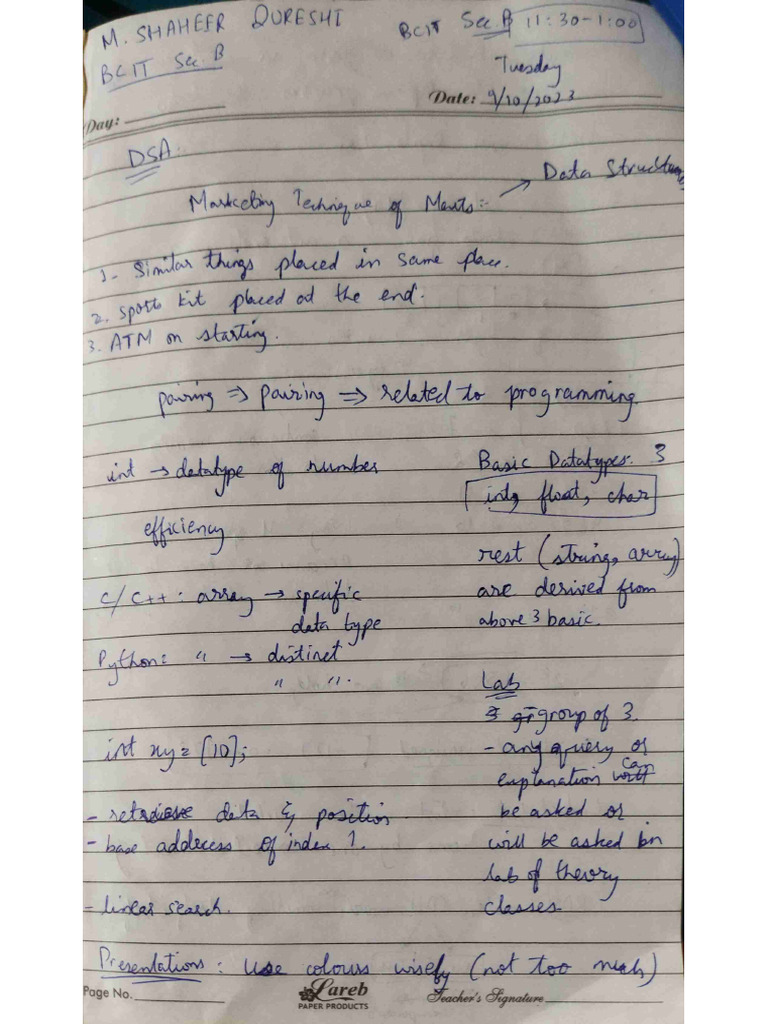 M. SHAHEER QURESHI
BCIT Sec. B 11:30-1:00
BCIT Sec. B
Tuesday
Day:
Date: 9/10/2023
DSA:
Marketing Technique of Marts:- → Data Structure
1- Similar things placed in same place.
2. Sports kit placed at the end.
3. ATM on starting.
pairing ⇒ pairing ⇒ related to programming
int → datatype of number
efficiency
C/C++: array → specific
data type
Python: " → distinct
" ".
int xy = [10];
- retrieve data & position
- base address of index 1.
= linear search.
Basic Datatypes: 3
int, float, char
rest (string, array)
are derived from
above 3 basic.
Lab
group of 3.
- any query or
explanation can
be asked or
will be asked in
lab of theory
classes
Presentations: Use colours wisely (not too much)
Page No.
Lareb
PAPER PRODUCTS
Teacher's Signature